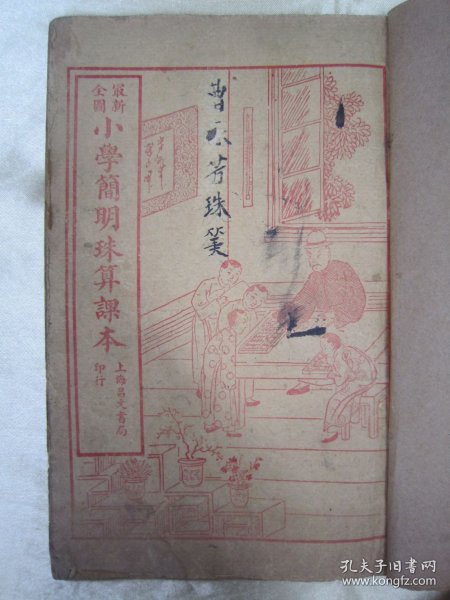 最新
全圖
小學簡明珠算課本
上海昌文書局
印行
曹 芳珠筭
孔夫子旧书网
www.kongfz.com